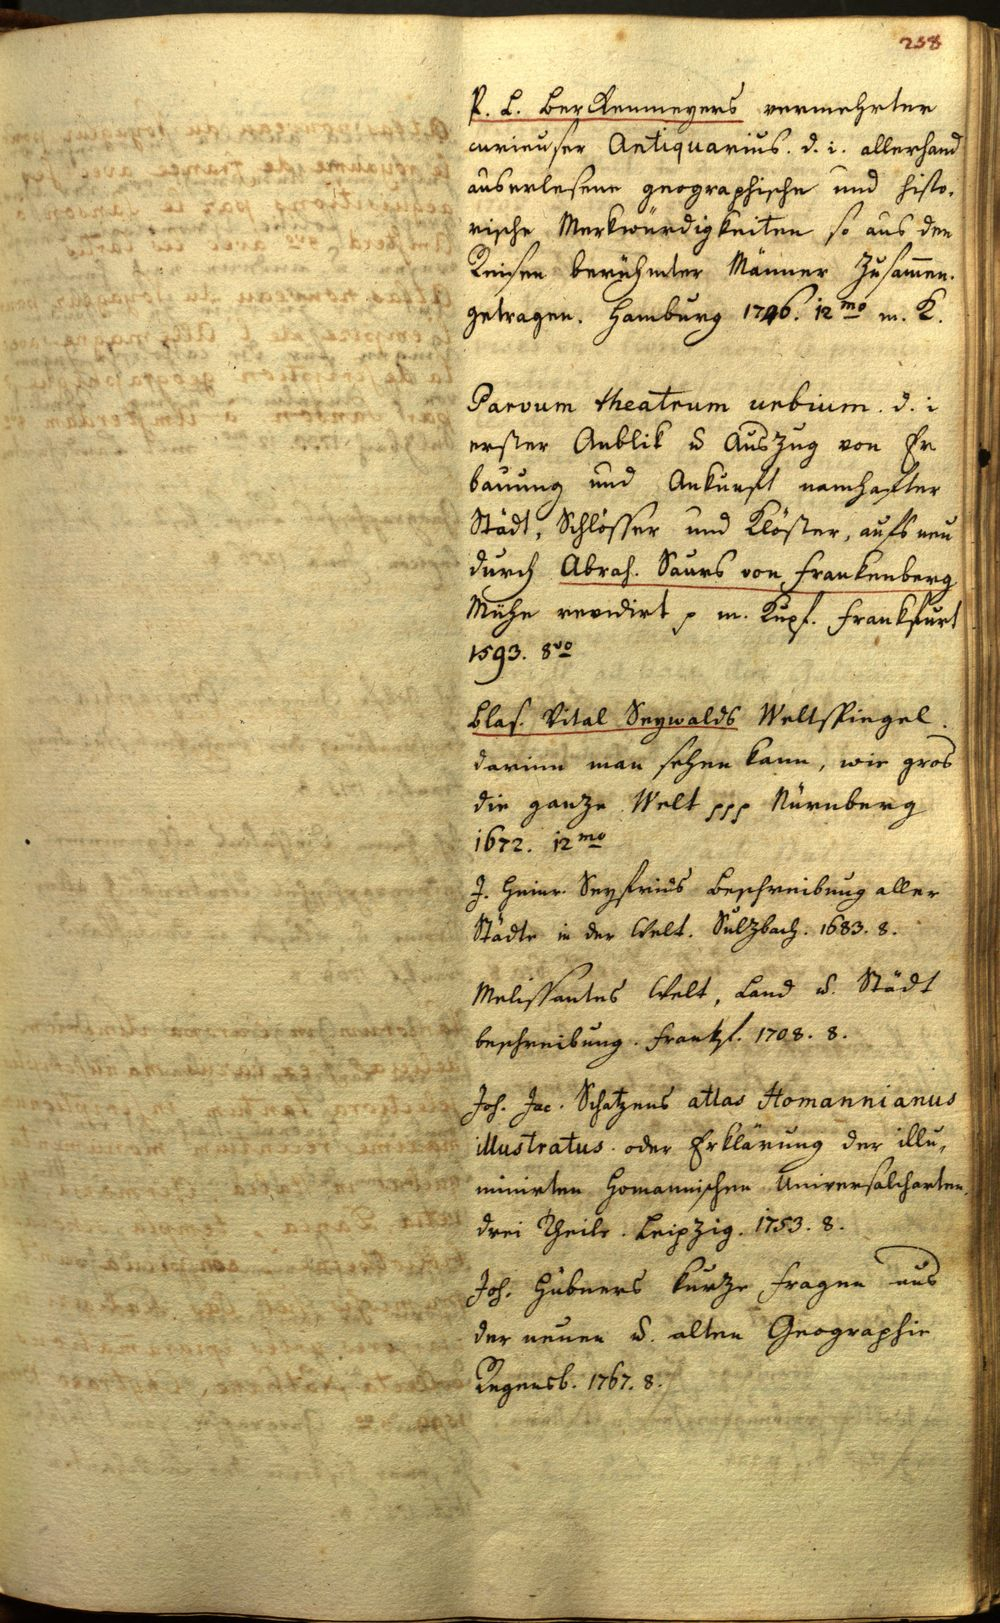 258
P. L. Berckenmeyers vermehrter
curieuser Antiquarius. d. i. allerhand
auserlesene geographische und histo-
rische Merkwürdigkeiten so aus den
Reisen berühmter Männer Zusammen-
getragen. Hamburg 1746. 12mo m. K.
Parvum theatrum urbium. d. i
erster Anblik u Auszug von Er
bauung und Ankunft namhafter
Städt, Schlösser und Klöster, aufs neu
durch Abrah. Saurs von Frankenberg
Mühe revidirt p m. Kupf. Frankfurt
1593. 8vo
Blas. Vital Seywalds Weltspiegel.
darinn man sehen kann, wie gros
die ganze Welt ppp Nürnberg
1672. 12mo
J. Heinr. Seyfrids Beschreibung aller
Städte in der Welt. Sulzbach. 1683. 8.
Melissantes Welt, Land u. Städt
beschreibung. Frankf. 1708. 8.
Joh. Jac. Schatzens atlas Homannianus
illustratus. oder Erklärung der illu-
minirten Homannischen Universalcharten.
drei Theile. Leipzig. 1753. 8.
Joh. Hübners kurze Fragen aus
der neuen u. alten Geographie
Regensb. 1767. 8.